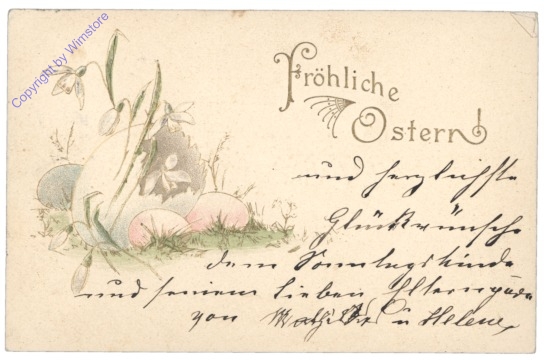 Copyright by Wimstore
Fröhliche
Ostern!
und herzlichste
Glückwünsche
dem Sonntagskinde
und seinem lieben Elternpaar
von Mathilde u Helene